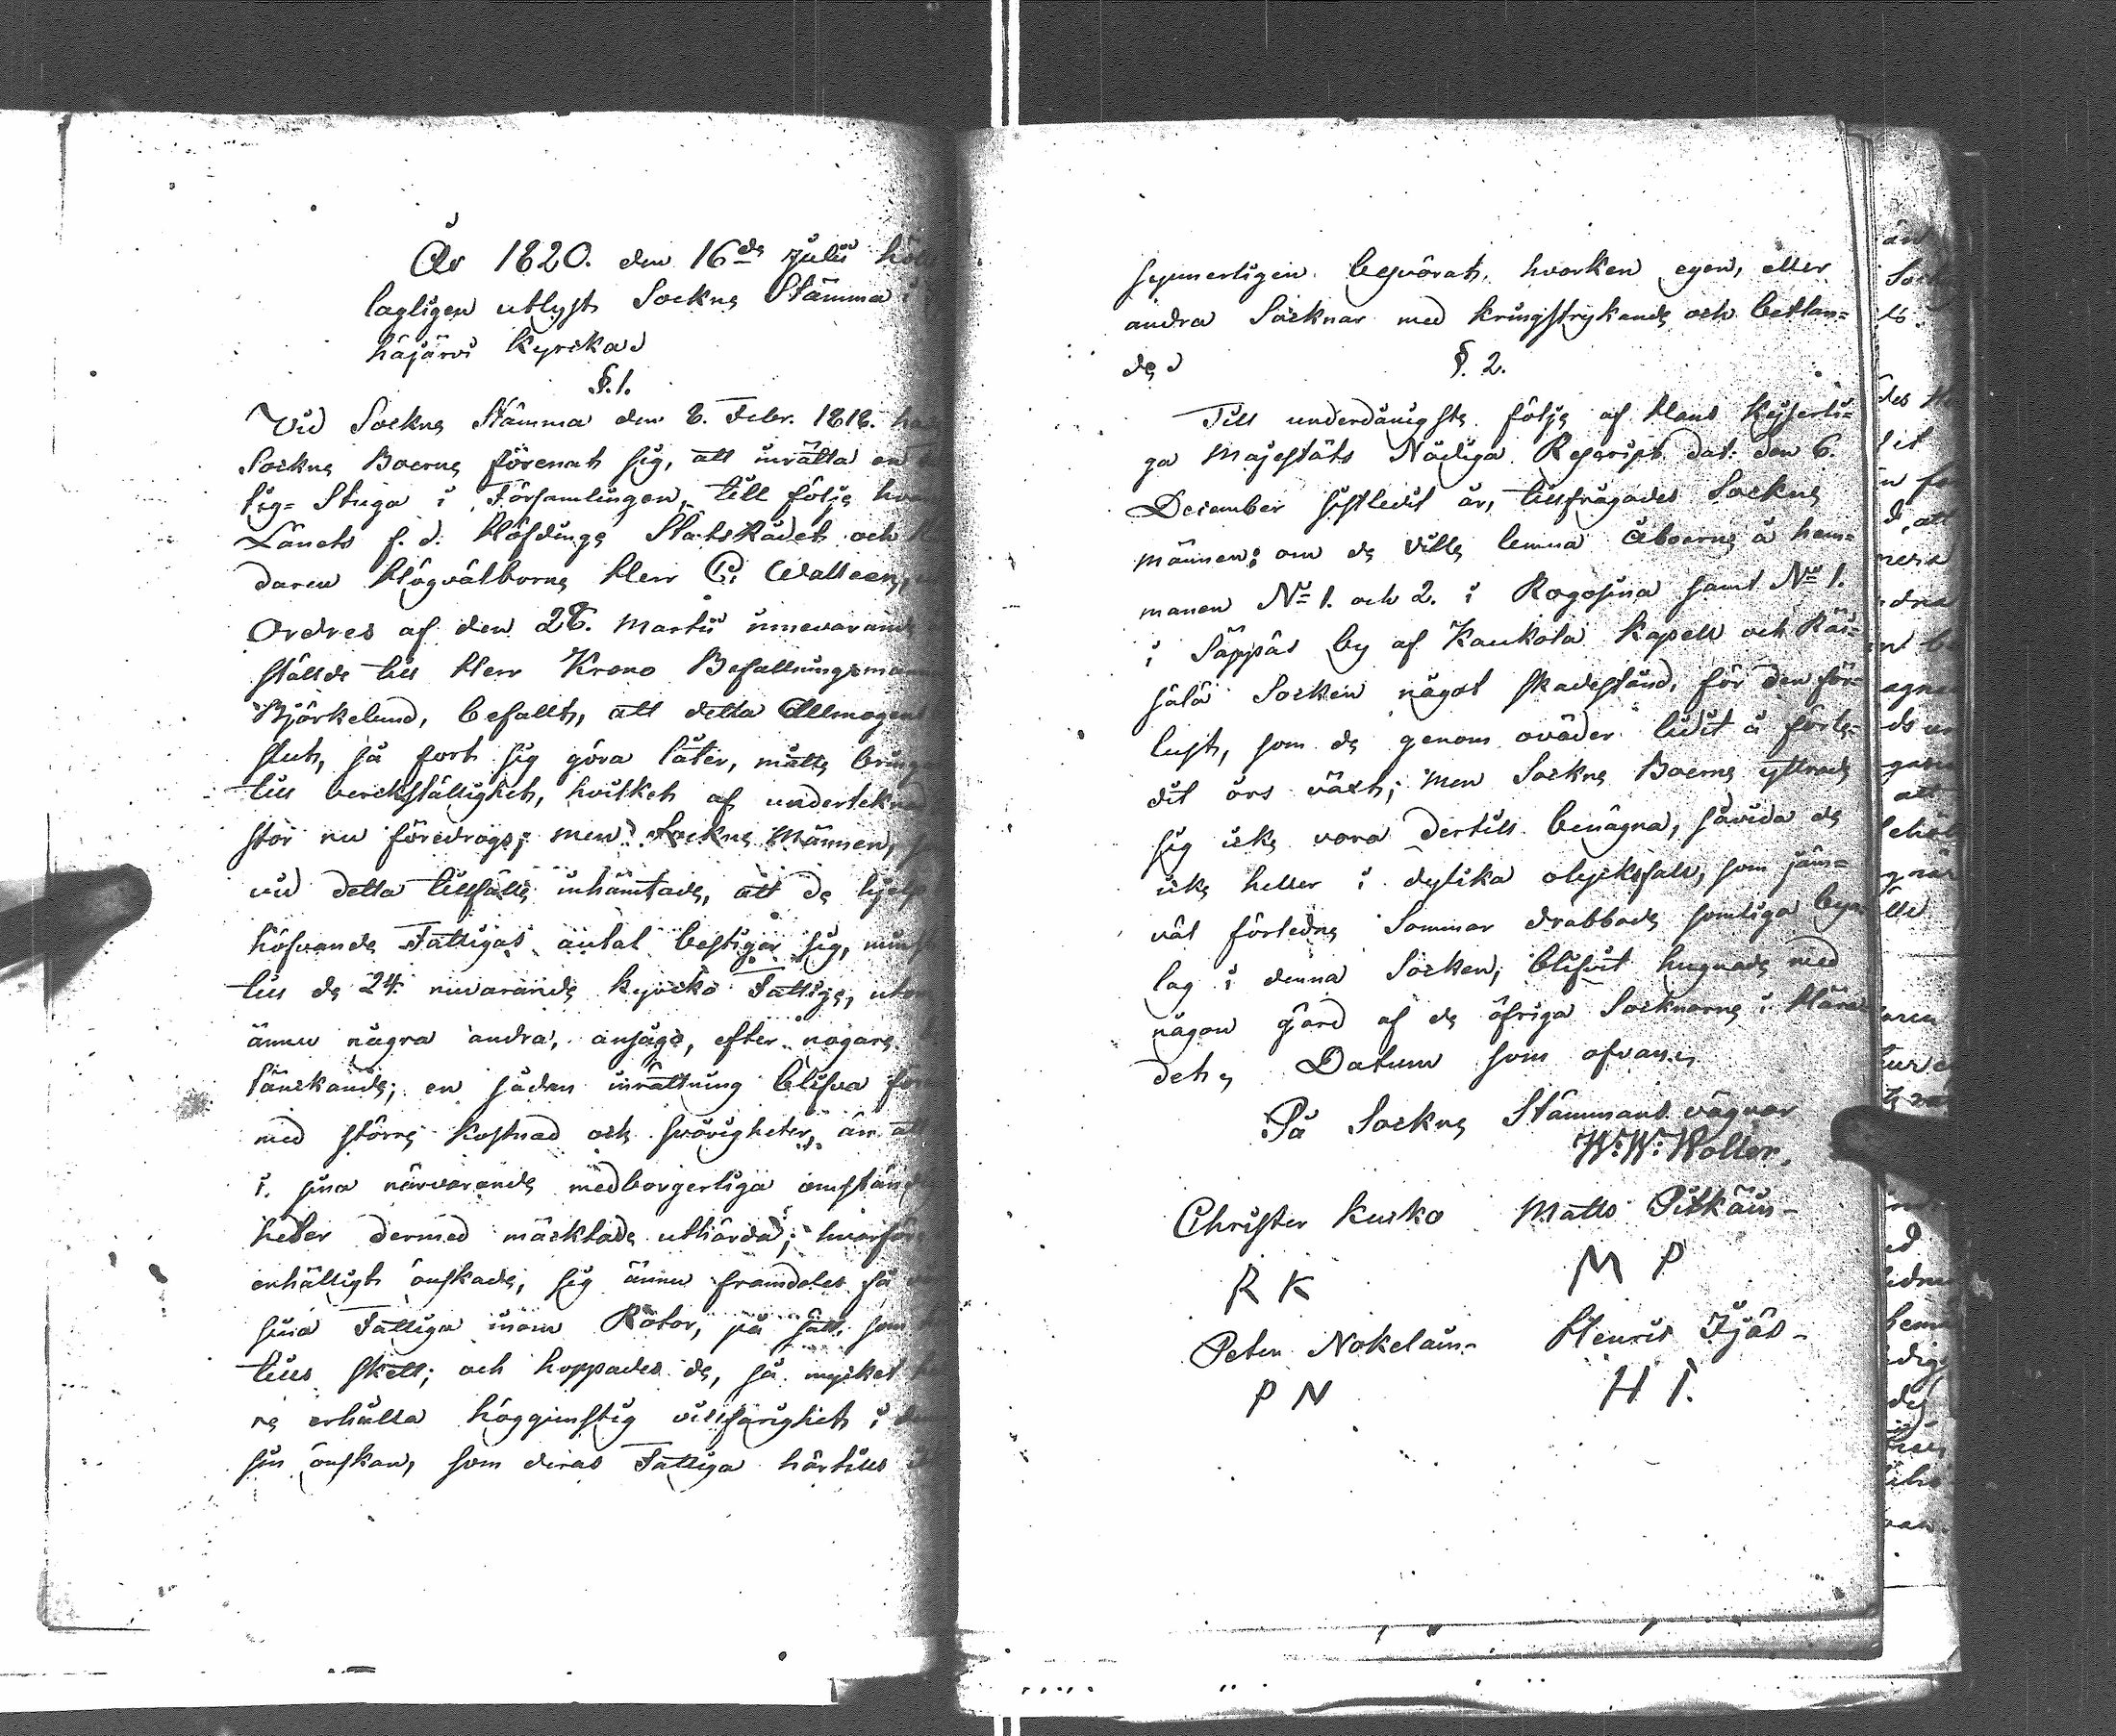 År 1820. den 16de Julii höls
lagligen utlyst Sockne Stämma i
häjärvi Kyrcka
§.1.
Vid Sockne Stämma den 8. Febr. 1818. ha
Sockne Boerne förenat sig, att inrätta en
tig-Stuga i Församlingen, till följe
Länets f. d. Höfdinge Statsrådet och
daren Högvälborne Herr C. Walleen,
Ordres af den 28. Martii innevarande
ställde till Herr Krono Befallningsman
Björkelund, befallt, att detta Allmogens
slut, så fort sig göra låter, måtte bringa
till verckställighet, hvilket af underteknad
stor nu föredrogs; men Sockne Männen,
vid detta tillfälle inhämtade, att de hjelp
höfvande Fattigas antal bestiger sig,
till de 24 nuvarande kyrcko Fattige, utom
ännu några andra, ansågo, efter nogare
tänckande; en sådan inrättning blifva
med större kostnad och svårigheter, än att
i sina närvarande medborgerliga omstän
heter dermed mäcktade uthärda; hvarföre
enhälligt önskade, sig ännu framdeles få
sina Fattiga inom Rotor, på sätt, som
tills skett; och hoppades de, så mycket
re erhålla höggunstig villfarighet i
sin önskan, som deras Fattiga härtills
synnerligen besvärat, hvarken egen, eller
andra Socknar med kringstrykande och betlan=
de
§. 2.
Till underdånigste följe af Hans Kejserli=
ga Majestäts Nådiga Rescript dat: den 6.
December sistledit år, tillfrågades Sockne
männen; om de ville lemna Åboerne å hem=
manen No 1. och 2. i Rogosina samt No 1.
i Säppäs by af Kaukola Kapell och Räi=
sälä Socken något skadestånd, för den för=
lust, som de genom oväder lidit å förle=
dit års växt; men Sockne Boerne yttrade
sig icke vara dertill benägna, såvida de
icke heller i dylika olycksfall, som jäm=
väl förledne Sommar drabbade somliga bya=
lag i denna Socken, blifvit hugnade med
någon gärd af de öfriga Socknarne i Hära
det. Datum som ofvan.
På Sockne Stämmans vägnar
W: W: Woller.
Christer Kurko Matts Pitkäin-
R K M P
Peter Nokelain- Henric Ijäs-
P N H I.